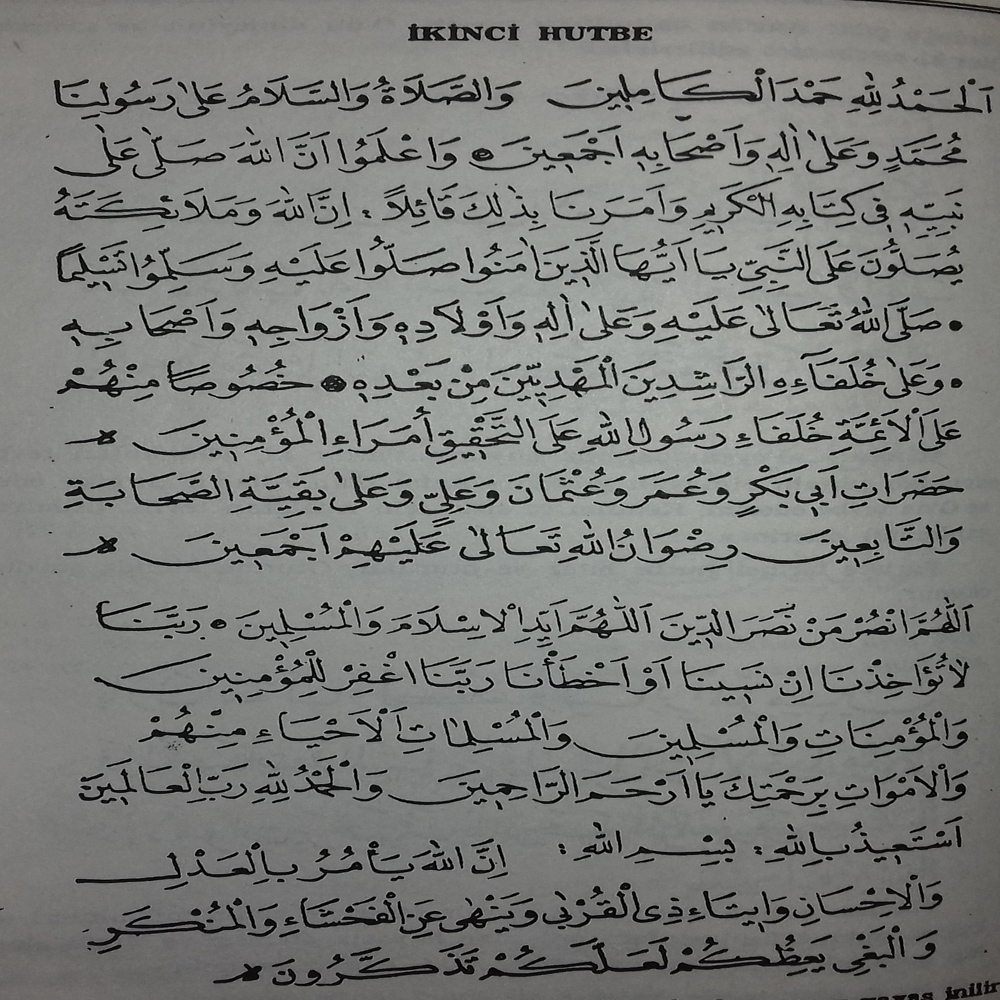 İKİNCİ HUTBE
اَلْحَمْدُ لِلّٰهِ حَمْدَ الْكَامِلِينَ وَالصَّلَاةُ وَالسَّلَامُ عَلٰى رَسُولِنَا
مُحَمَّدٍ وَعَلٰى اٰلِهِ وَاَصْحَابِهِ اَجْمَعِينَ • وَاعْلَمُوا اَنَّ اللّٰهَ صَلّٰى عَلٰى
نَبِيِّهِ فِى كِتَابِهِ الْكَرِيمِ وَاَمَرَنَا بِذٰلِكَ قَائِلاً : اِنَّ اللّٰهَ وَمَلَائِكَتَهُ
يُصَلُّونَ عَلَى النَّبِيِّ يَا اَيُّهَا الَّذِينَ اٰمَنُوا صَلُّوا عَلَيْهِ وَسَلِّمُوا تَسْلِيمًا
• صَلَّى اللّٰهُ تَعَالٰى عَلَيْهِ وَعَلٰى اٰلِهِ وَاَوْلَادِهِ وَاَزْوَاجِهِ وَاَصْحَابِهِ
• وَعَلٰى خُلَفَاءِهِ الرَّاشِدِينَ الْمَهْدِيِّينَ مِنْ بَعْدِهِ • خُصُوصًا مِنْهُمْ
عَلَى الْاَئِمَّةِ خُلَفَاءِ رَسُولِ اللّٰهِ عَلَى التَّحْقِيقِ أُمَرَاءِ الْمُؤْمِنِينَ
حَضَرَاتِ اَبِى بَكْرٍ وَعُمَرَ وَعُثْمَانَ وَعَلِيٍّ وَعَلٰى بَقِيَّةِ الصَّحَابَةِ
وَالتَّابِعِينَ رِضْوَانُ اللّٰهِ تَعَالٰى عَلَيْهِمْ اَجْمَعِينَ
اَللّٰهُمَّ انْصُرْ مَنْ نَصَرَ الدِّينَ اَللّٰهُمَّ اَيِّدِ الْاِسْلَامَ وَالْمُسْلِمِينَ • رَبَّنَا
لَا تُؤَاخِذْنَا اِنْ نَسِينَا اَوْ اَخْطَأْنَا رَبَّنَا اغْفِرْ لِلْمُؤْمِنِينَ
وَالْمُؤْمِنَاتِ وَالْمُسْلِمِينَ وَالْمُسْلِمَاتِ اَلْاَحْيَاءِ مِنْهُمْ
وَالْاَمْوَاتِ بِرَحْمَتِكَ يَا اَرْحَمَ الرَّاحِمِينَ وَالْحَمْدُ لِلّٰهِ رَبِّ الْعَالَمِينَ
اَسْتَعِيذُ بِاللّٰهِ : بِسْمِ اللّٰهِ : اِنَّ اللّٰهَ يَأْمُرُ بِالْعَدْلِ
وَالْاِحْسَانِ وَاِيتَاءِ ذِى الْقُرْبٰى وَيَنْهٰى عَنِ الْفَحْشَاءِ وَالْمُنْكَرِ
وَالْبَغْىِ يَعِظُكُمْ لَعَلَّكُمْ تَذَكَّرُونَ
inilir